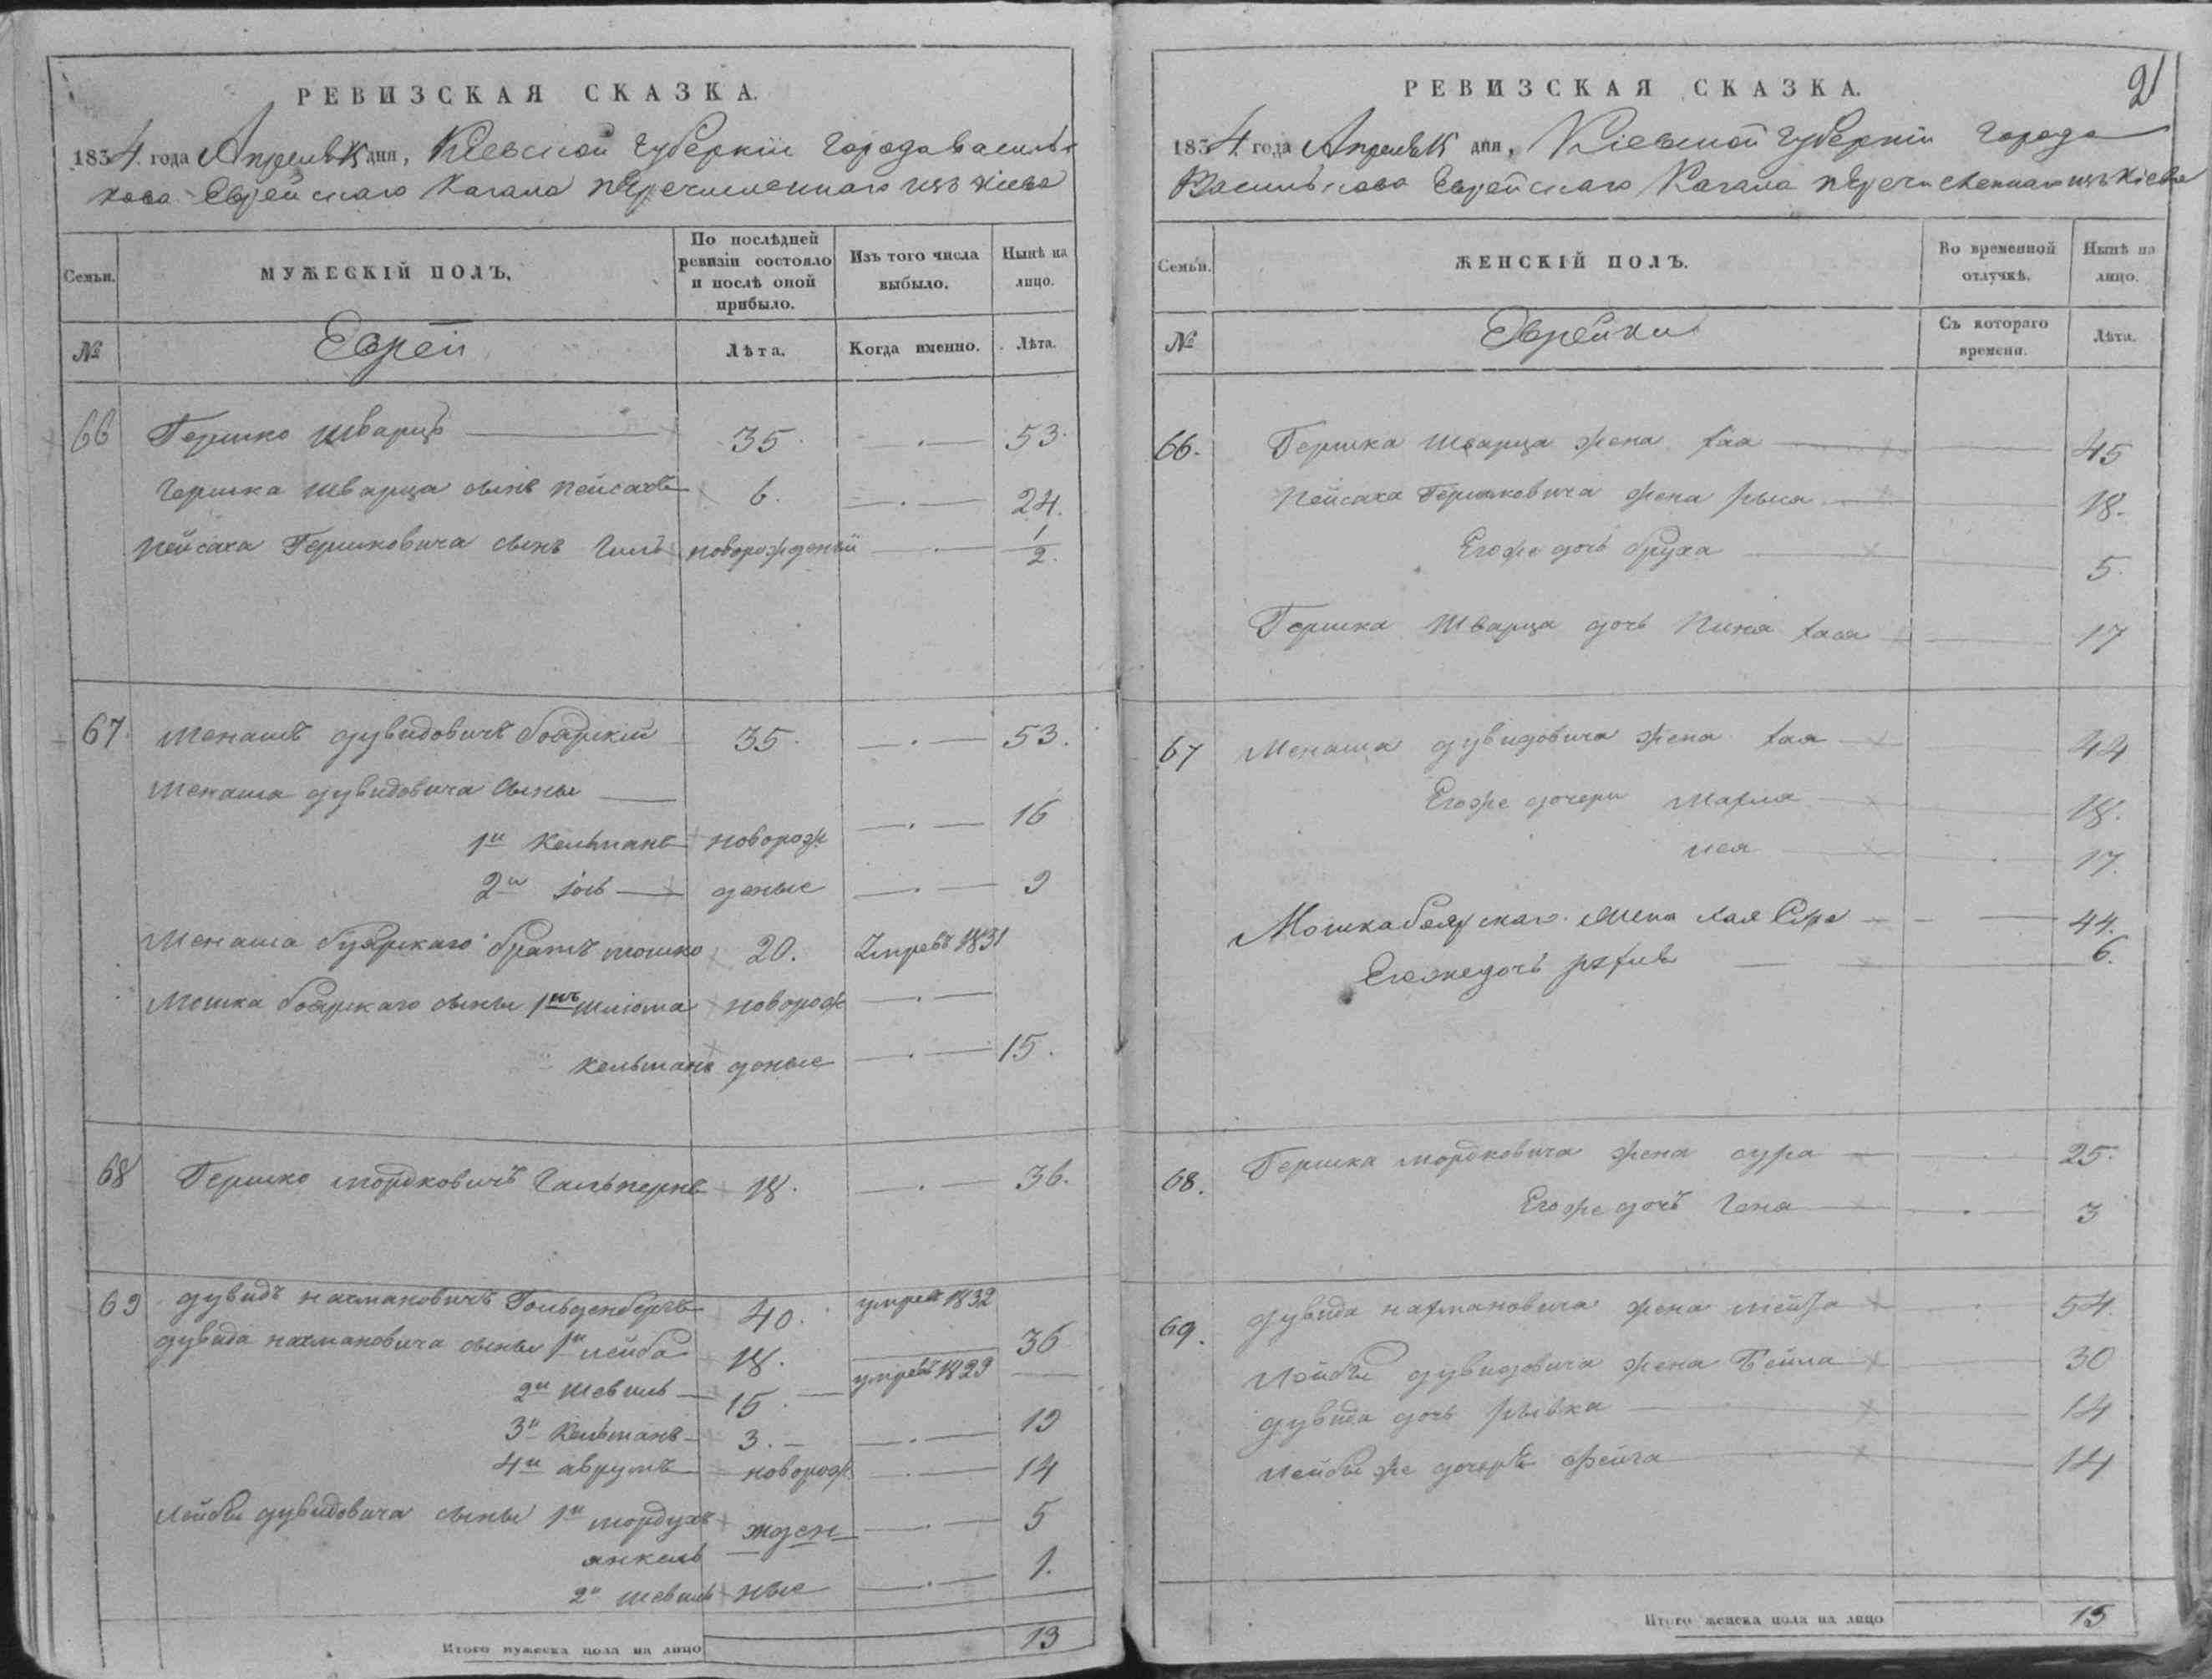 РЕВИЗСКАЯ СКАЗКА.
1834 года Апреля 15 дня, Кіевской Губерніи Города Василь-
кова Еврейскаго Кагала перечисленнаго изъ Кіева
Семьи.
МУЖЕСКІЙ ПОЛЪ.
По послѣдней ревизіи состояло и послѣ оной прибыло.
Изъ того числа выбыло.
Нынѣ на лицо.
№
Еврей
Лѣта.
Когда именно.
Лѣта.
66 Гершко Шварцъ 35 53
Гершка Шварца сынъ Пейсахъ 6. 24.
Пейсаха Гершковича сынъ новорожденый 1/2.
67 Менашъ дувидовичъ боярскій 35 53.
Менаша дувидовича сыны
1й Кельманъ новорож 16
2й деные 9
Менаша буярскаго братъ мошко 20. Умревъ 1831
Мошка боярскаго сыны 1й шліома новорож
Кельманъ деные 15.
68 Гершко мордковичъ Гальпернъ 18. 36.
69 дувидъ нахмановичъ Гольденбергъ 40. умревъ 1832
дувида нахмановича сыны 1й лейба 18. 36
2й шевель 15. умревъ 1829
3й Кельманъ 3. 19
4й аврумъ новорож 14
Лейбы дувидовича сыны 1й мордухъ жден 5
янкель
2й шевель ные 1.
Итого мужеска пола на лицо 13
РЕВИЗСКАЯ СКАЗКА.
21
1834 года Апреля 15 дня, Кіевской Губерніи Города
Василькова Еврейскаго Кагала перечисленнаго изъ Кіева
Семьи.
ЖЕНСКІЙ ПОЛЪ.
Во временной отлучкѣ.
Нынѣ на лицо.
№
Еврейки
Съ котораго времени.
Лѣта.
66. Гершка Шварца жена хая 45
Пейсаха Гершковича жена 18.
Егоже дочь бруха 5.
Гершка Шварца дочь хася 17
67 Менаша дувидовича жена хая 44
Егоже дочери махля 18.
лея 17.
Мошка боярскаго жена хая 44.
Егоже дочь 6.
68. Гершка мордковича жена сура 25.
Егоже дочь Гена 3
69. дувида нахмановича жена 54.
Лейбы дувидовича жена Бейла 30
дувида дочь рывка 14
Лейбы же дочерь фейга 14
Итого женска пола на лицо 15